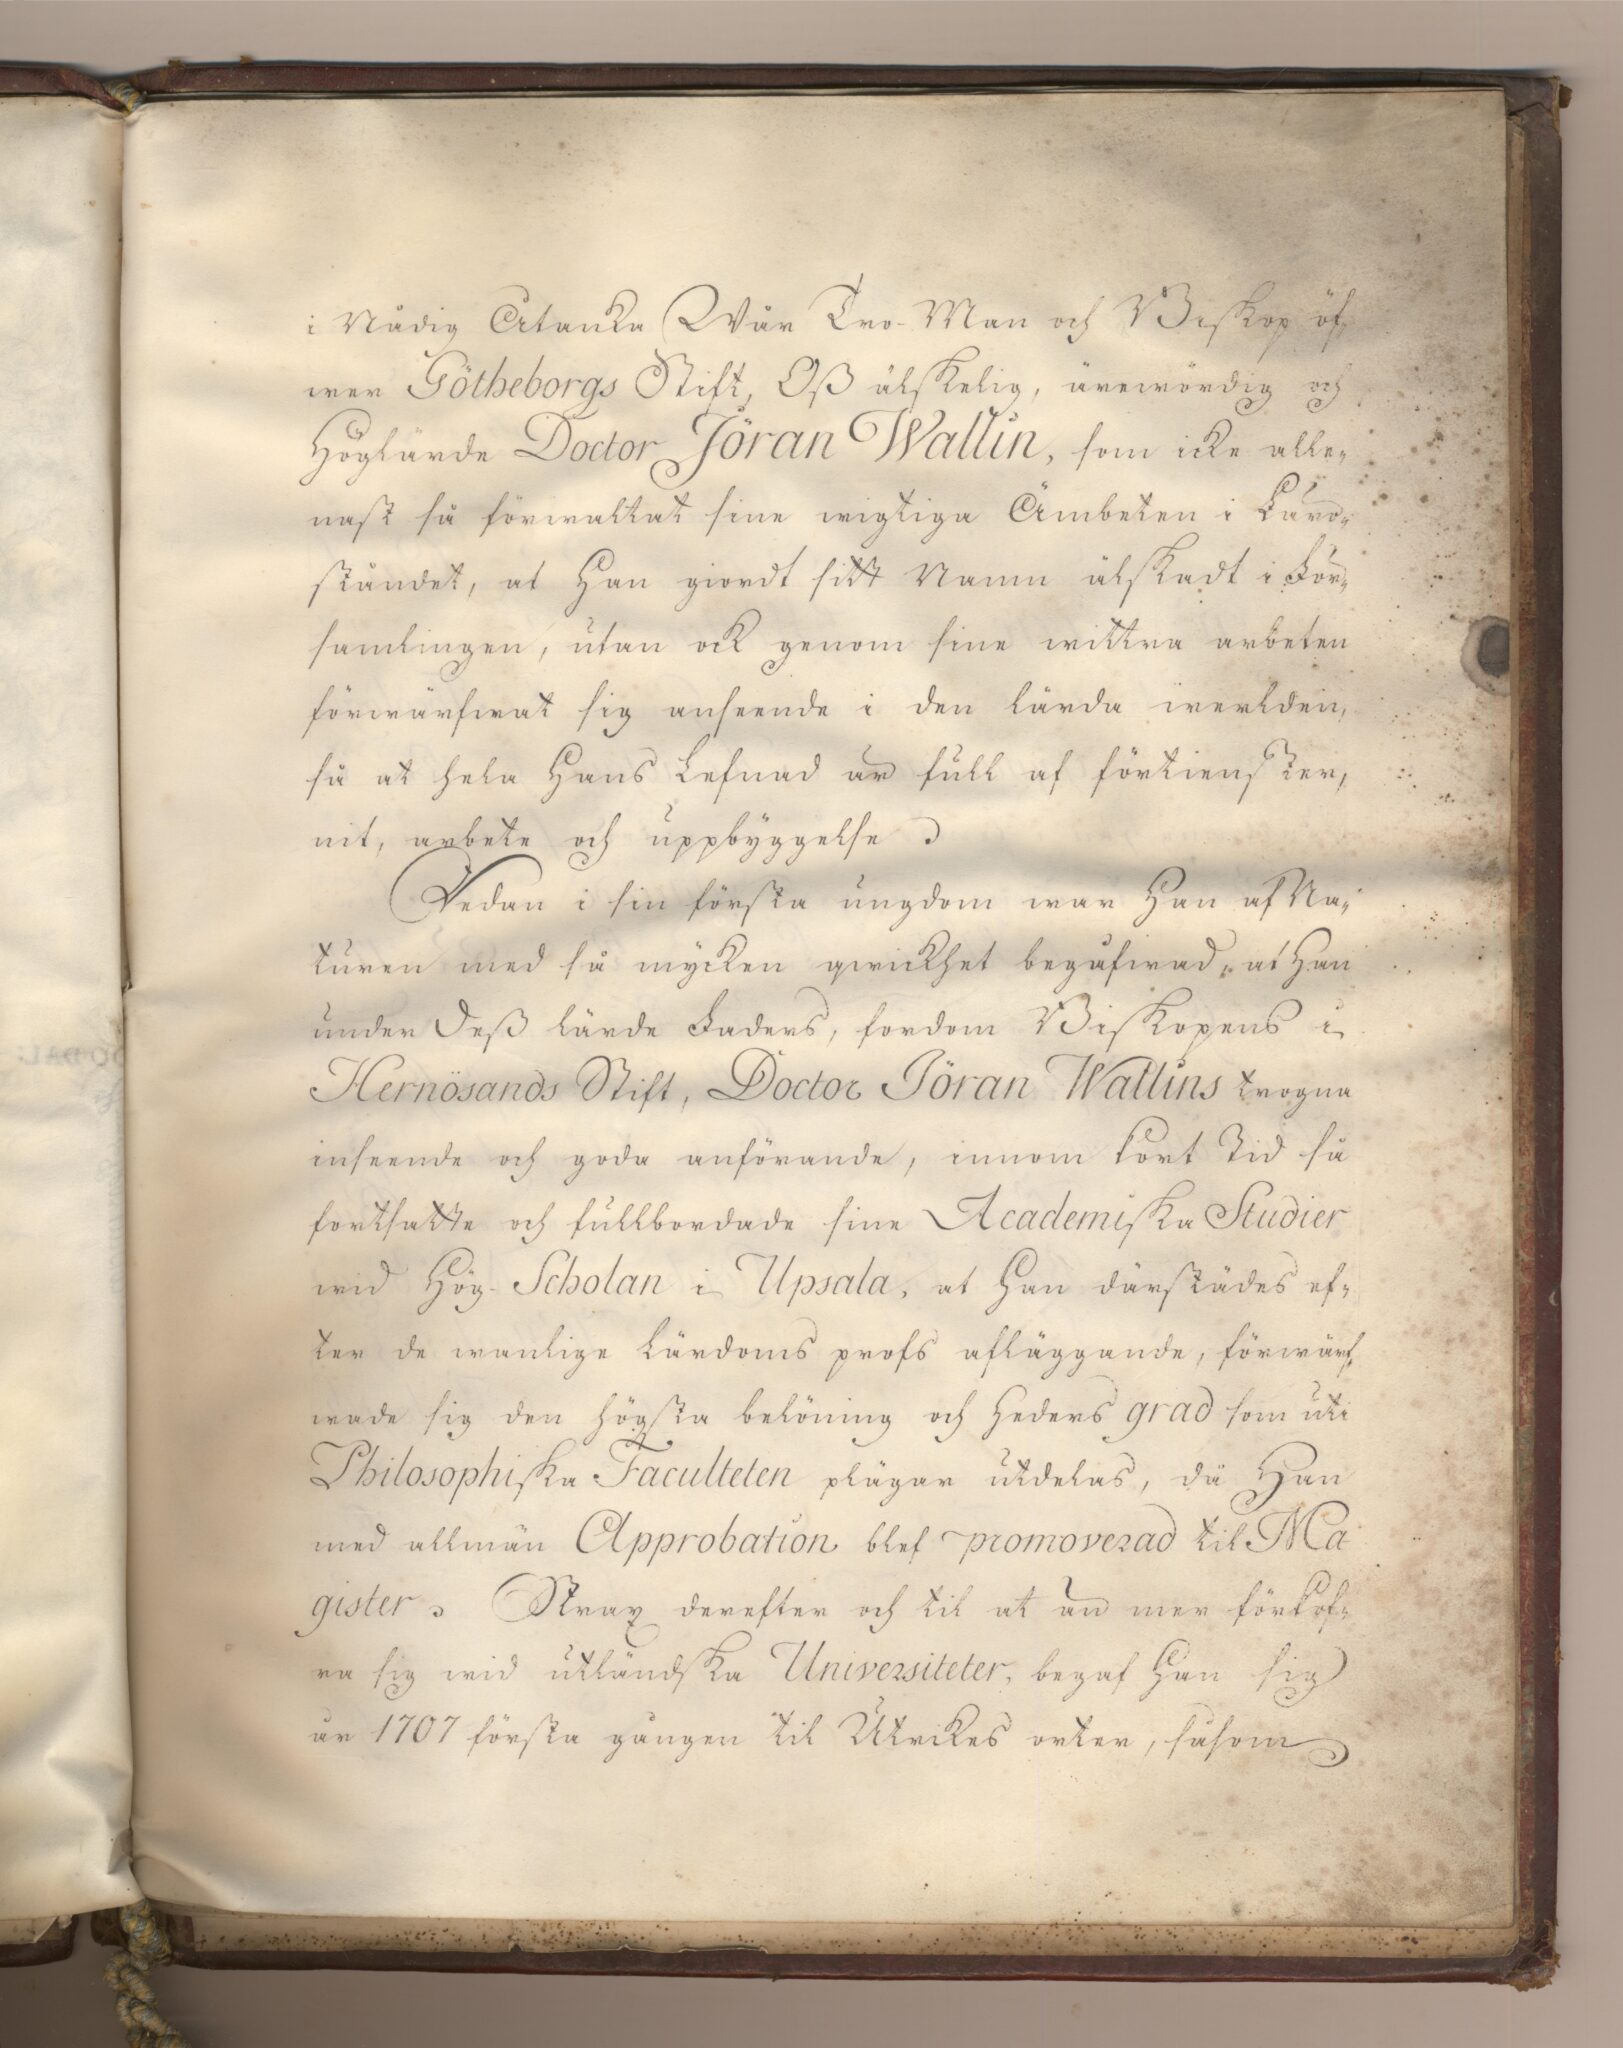 i Nådig Åtanka Wår Tro-Man och Biskop öf-
wer Götheborgs Stift, Oß älskelig, ärewördig och
Höglärde Doctor Jöran Wallin, som icke alle-
nast så förwaltat sine wigtiga Ämbeten i Läro-
ståndet, at Han giordt sitt Namn älskadt i För-
samlingen, utan ock genom sine wittra arbeten
förwärfwat sig anseende i den lärda werlden,
så at hela Hans Lefnad är full af förtienster,
nit, arbete och uppbyggelse.
Redan i sin första ungdom war Han af Na-
turen med så mycken qwickhet begåfwad, at Han
under Deß lärde Faders, fordom Biskopens i
Hernösands Stift, Doctor Jöran Wallins trogna
inseende och goda anförande, innom kort Tid så
fortsatte och fullbordade sine Academiska Studier
wid Hög-Scholan i Upsala, at Han därstädes ef-
ter de wanlige Lärdoms profs afläggande, förwärf-
wade sig den högsta belöning och Heders grad som uti
Philosophiska Faculteten plägar utdelas, då Han
med allmän Approbation blef promoverad til Ma
gister. Strax derefter och til at än mer förkof-
ra sig wid utländska Universiteter, begaf Han sig
år 1707 första gången til Utrikes orter, såsom